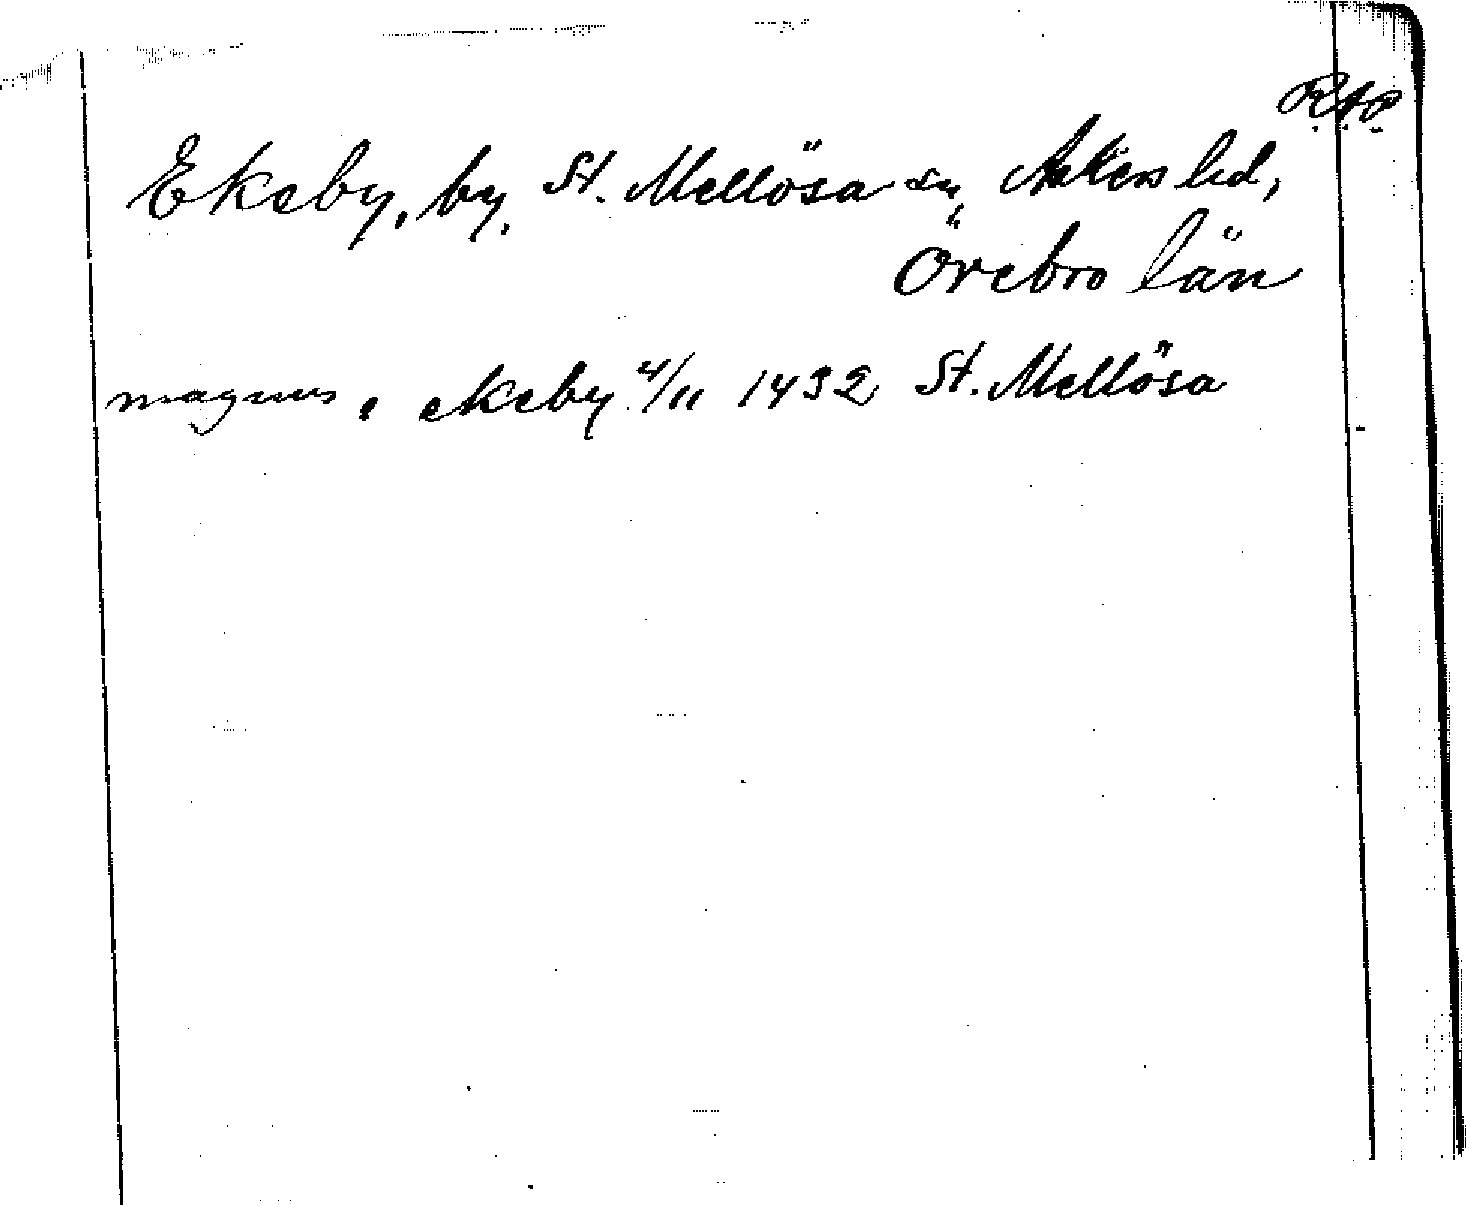 RAP
Ekeby, by, St. Mellösa sn, Askers hd,
Örebro län
magnus i ekeby 4/11 1432 St. Mellösa